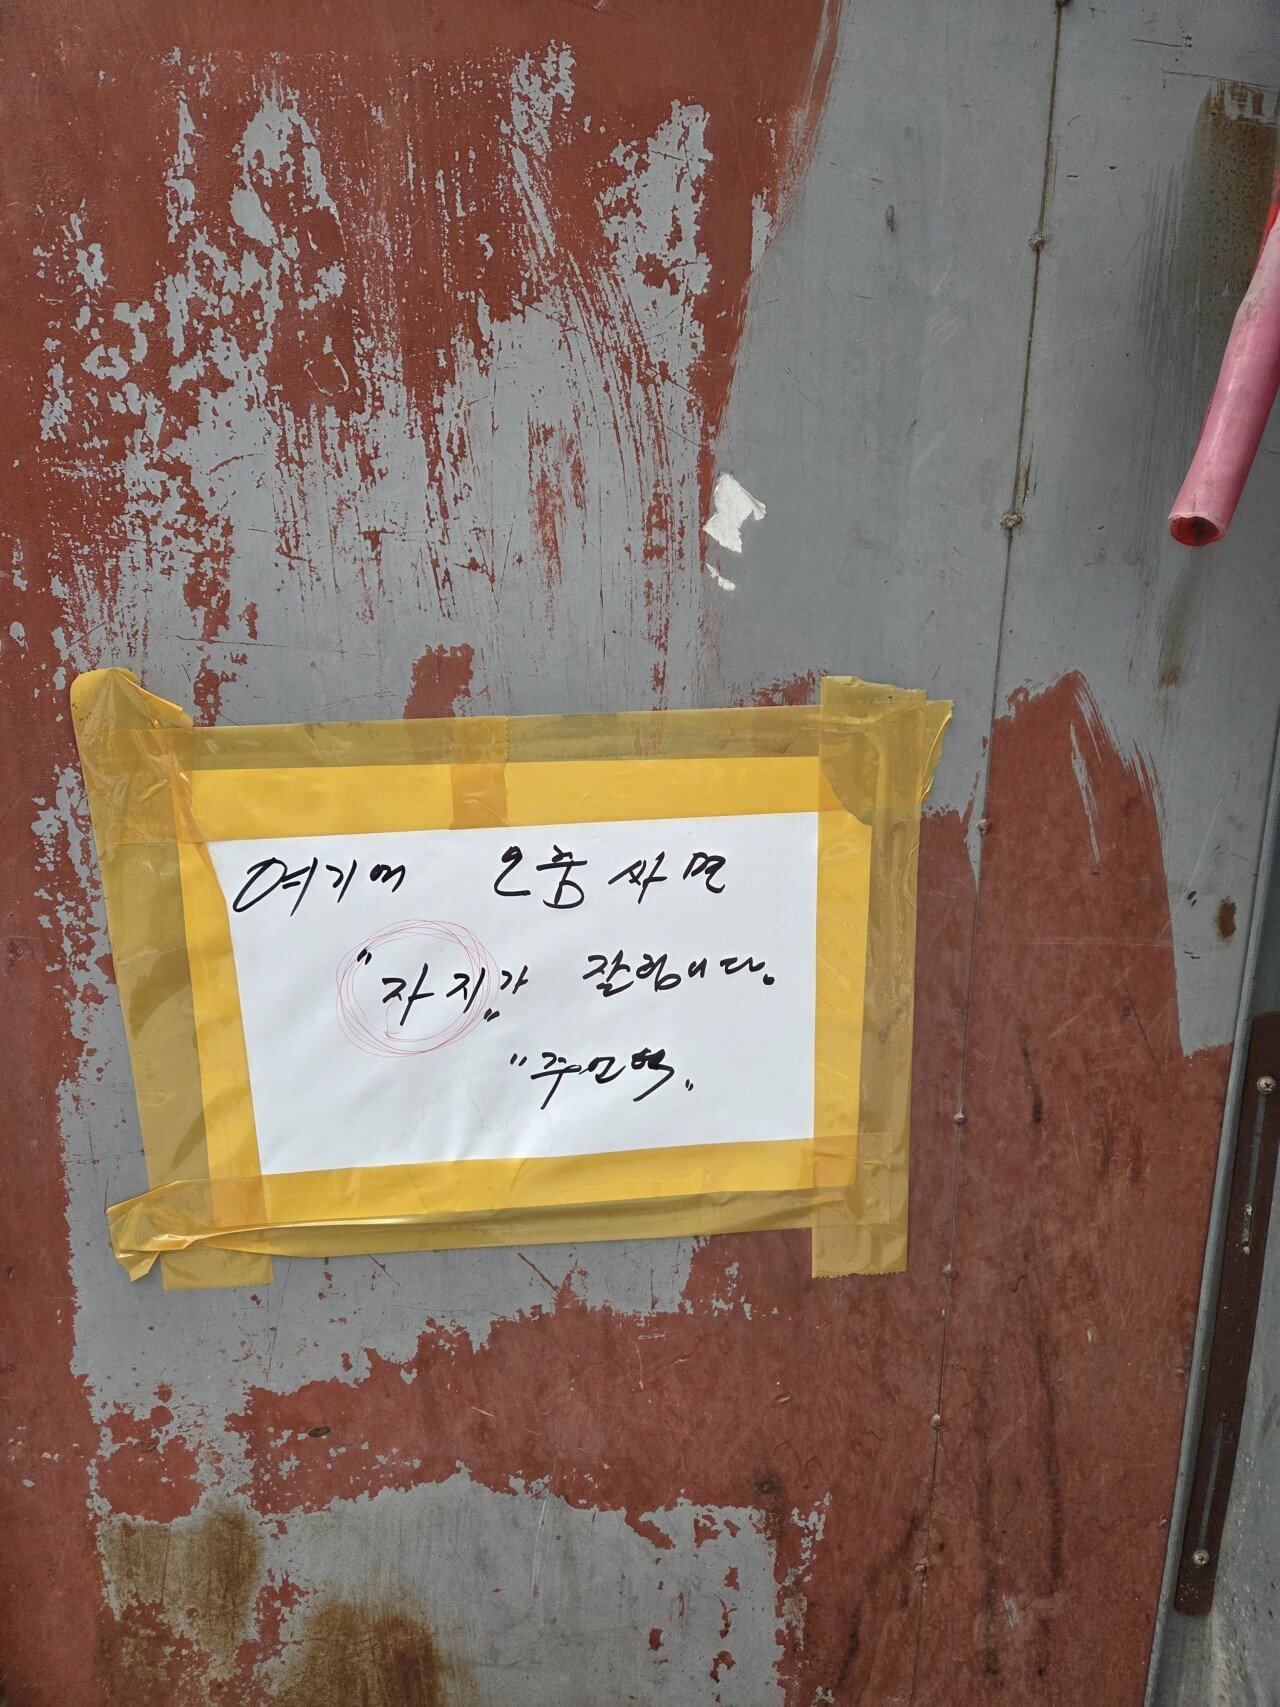 여기에 오줌싸면
"자지"가 잘림니다.
"주인백"